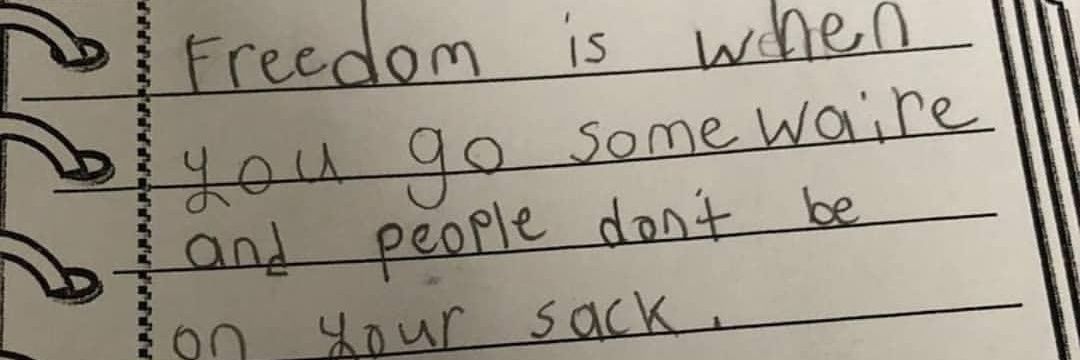 Freedom is when
you go somewaire
and people don't be
on your sack.